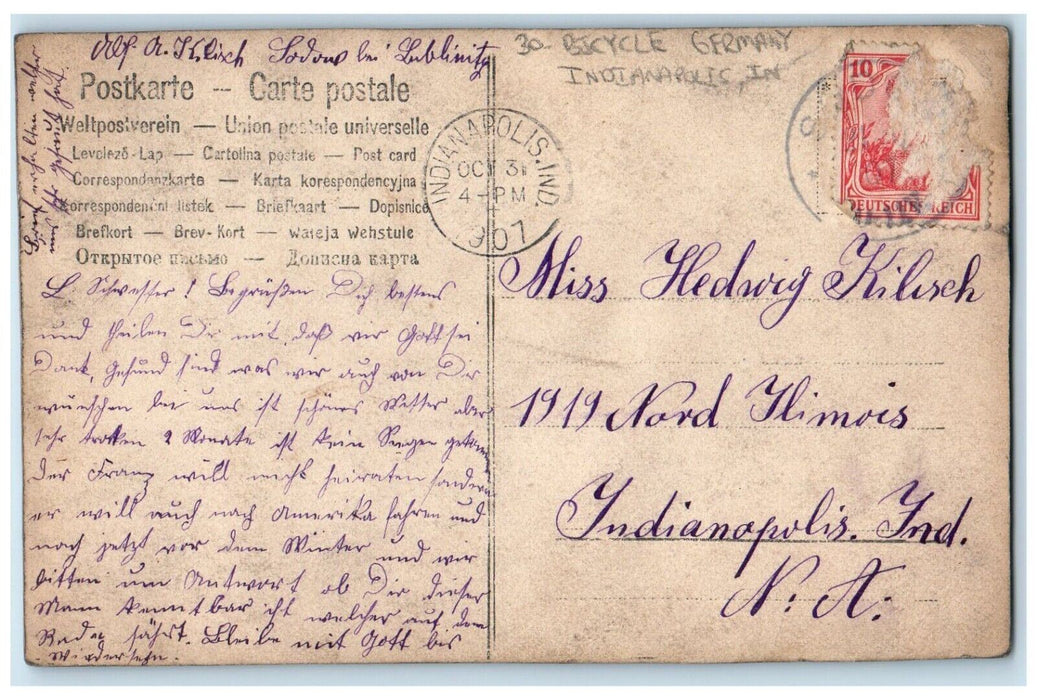 Abs. A. Kilisch Sodow bei Lublinitz
30- BICYCLE GERMANY
INDIANAPOLIC, IN
Postkarte -- Carte postale
Weltpostverein — Union postale universelle
Levelező-Lap — Cartolina postale — Post card
Correspondenzkarte — Karta korespondencyjna
Korrespondenční lístek — Briefkaart — Dopisnice
Brefkort — Brev-Kort —
Открытое письмо — Дописна карта
Brief erhalten welter
uns sehr gefreut hat.
INDIANAPOLIS, IND.
OCT 31
4-PM
1907
10
DEUTSCHES REICH
L. Schwester! Begrüßen Dich bestens
und theilen Dir mit, daß wir Gott sei
Dank, gesund sind was wir auch von Dir
wünschen bei uns ist schönes Wetter aber
sehr trocken 2 Monate ist kein Regen
Der Franz will nicht heiraten sondern
er will auch nach Amerika fahren und
noch jetzt vor dem Winter und wir
bitten um Antwort ob Dir dieser
Mann kenntbar ist welcher auf dem
Rade fährt. Bleibe mit Gott bis
Wiedersehn.
Miss Hedwig Kilisch
1919 Nord Ilinois
Indianapolis. Ind.
N. A.